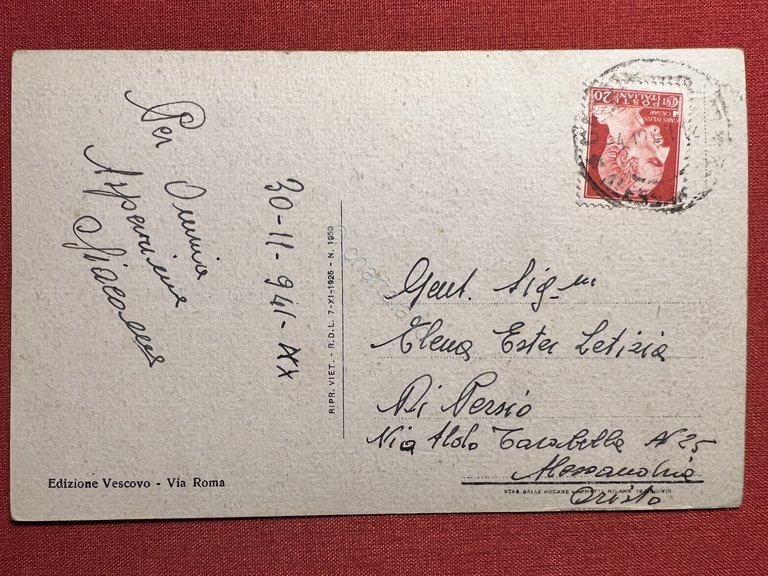 Per Omnia
Asperrima
Giacomo
30-11-941-XX
RIPR. VIET. - R.D.L. 7-XI-1925 - N. 1950
Edizione Vescovo - Via Roma
POSTE ITALIANE
CENT 20
Gent. Sig.na
Elena Ester Letizia
Di Persio
Via Aldo Tarabella N 25
Alessandria
Oristo